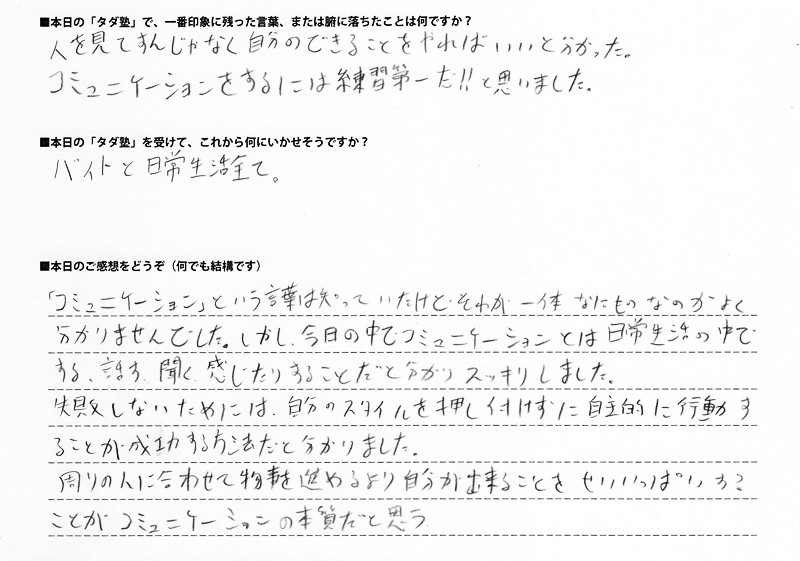 ■本日の「タダ塾」で、一番印象に残った言葉、または腑に落ちたことは何ですか？
人を見てすんじゃなく自分のできることをやればいいと分かった。
コミュニケーションをするには練習第一だ!!と思いました。
■本日の「タダ塾」を受けて、これから何にいかせそうですか？
バイトと日常生活全て。
■本日のご感想をどうぞ（何でも結構です）
「コミュニケーション」という言葉は知っていたけど、それが一体なにものなのかよく
分かりませんでした。しかし、今日の中でコミュニケーションとは日常生活の中で
する、話す、聞く、感じたりすることだと分かりスッキリしました。
失敗しないためには、自分のスタイルを押し付けずに自主的に行動す
ることが成功する方法だと分かりました。
周りの人に合わせて物事を進めるより自分が出来ることをせいいっぱいやる
ことがコミュニケーションの本質だと思う